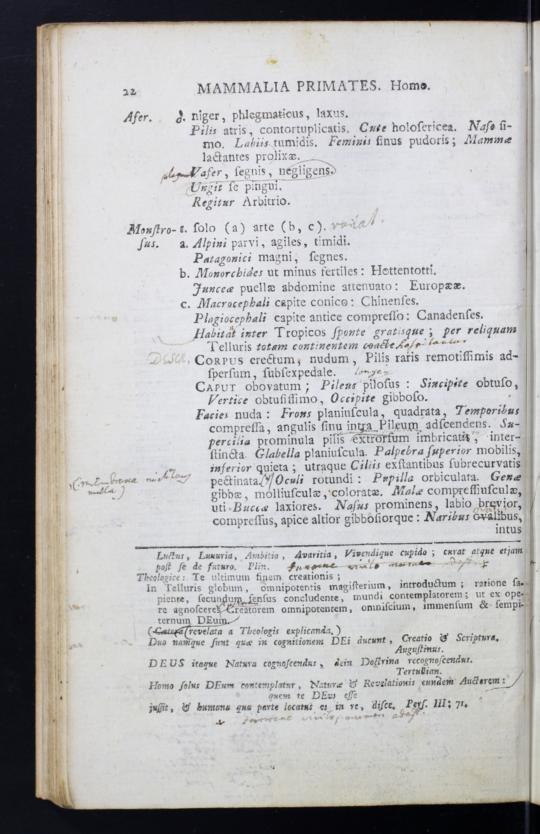 22 MAMMALIA PRIMATES. Homo.
Afer. δ. niger, phlegmaticus, laxus.
Pilis atris, contortuplicatis. Cute holosericea. Naso si-
mo. Labiis tumidis. Feminis sinus pudoris; Mammæ
lactantes prolixæ.
Vafer, segnis, negligens.
Ungit se pingui.
Regitur Arbitrio.
Monstro- ε. solo (a) arte (b, c). variat.
sus. a. Alpini parvi, agiles, timidi.
Patagonici magni, segnes.
b. Monorchides ut minus fertiles: Hottentotti.
Junceæ puellæ abdomine attenuato: Europææ.
c. Macrocephali capite conico: Chinenses.
Plagiocephali capite antice compresso: Canadenses.
Habitat inter Tropicos sponte gratisque; per reliquam
Telluris totam continentem coacte hospitatus
Descr. CORPUS erectum, nudum, Pilis raris remotissimis ad-
spersum, subsexpedale.
CAPUT obovatum; Pileus pilosus: Sincipite obtuso,
Vertice obtusissimo, Occipite gibboso.
Facies nuda: Frons planiuscula, quadrata, Temporibus
compressa, angulis sinu intra Pileum adscendens. Su-
percilia prominula pilis extrorsum imbricatis, inter-
stincta. Glabella planiuscula. Palpebra superior mobilis,
inferior quieta; utraque Ciliis exstantibus subrecurvatis
pectinata. Oculi rotundi: Pupilla orbiculata. Genæ
(membrana nictitans
nulla)
gibbæ, molliusculæ, coloratæ. Malæ compressiusculæ,
uti Buccæ laxiores. Nasus prominens, labio brevior,
compressus, apice altior gibbosiorque: Naribus ovalibus,
intus
Luctus, Luxuria, Ambitio, Avaritia, Vivendique cupido; curat atque etjam
post se de futuro. Plin.
Theologice: Te ultimum finem creationis;
In Telluris globum, omnipotentis magisterium, introductum; ratione sa-
piente, secundum sensus concludente, mundi contemplatorem; ut ex ope-
re agnosceres Creatorem omnipotentem, omniscium, immensum & sempi-
ternum DEum.
(Cætera revelata a Theologis explicanda.)
Duo namque sunt quæ in cognitionem DEi ducunt, Creatio & Scriptura,
Augustinus.
DEUS itaque Natura cognoscendus, dein Doctrina recognoscendus.
Tertullian.
Homo solus DEum contemplatur, Naturæ & Revelationis eundem Auctorem:
quem te DEus esse
jussit, & humana qua parte locatus es in re, disce. Pers. III; 71.